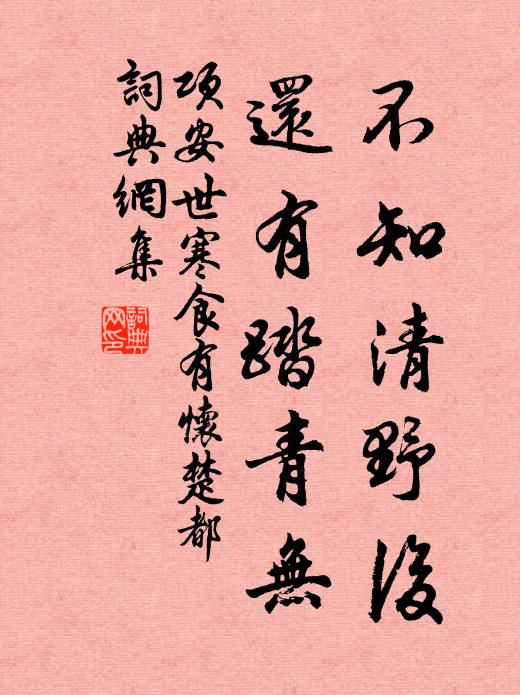 不知清野後
還有踏青無
項安世寒食有懷楚都
詞典網集
詞典網印